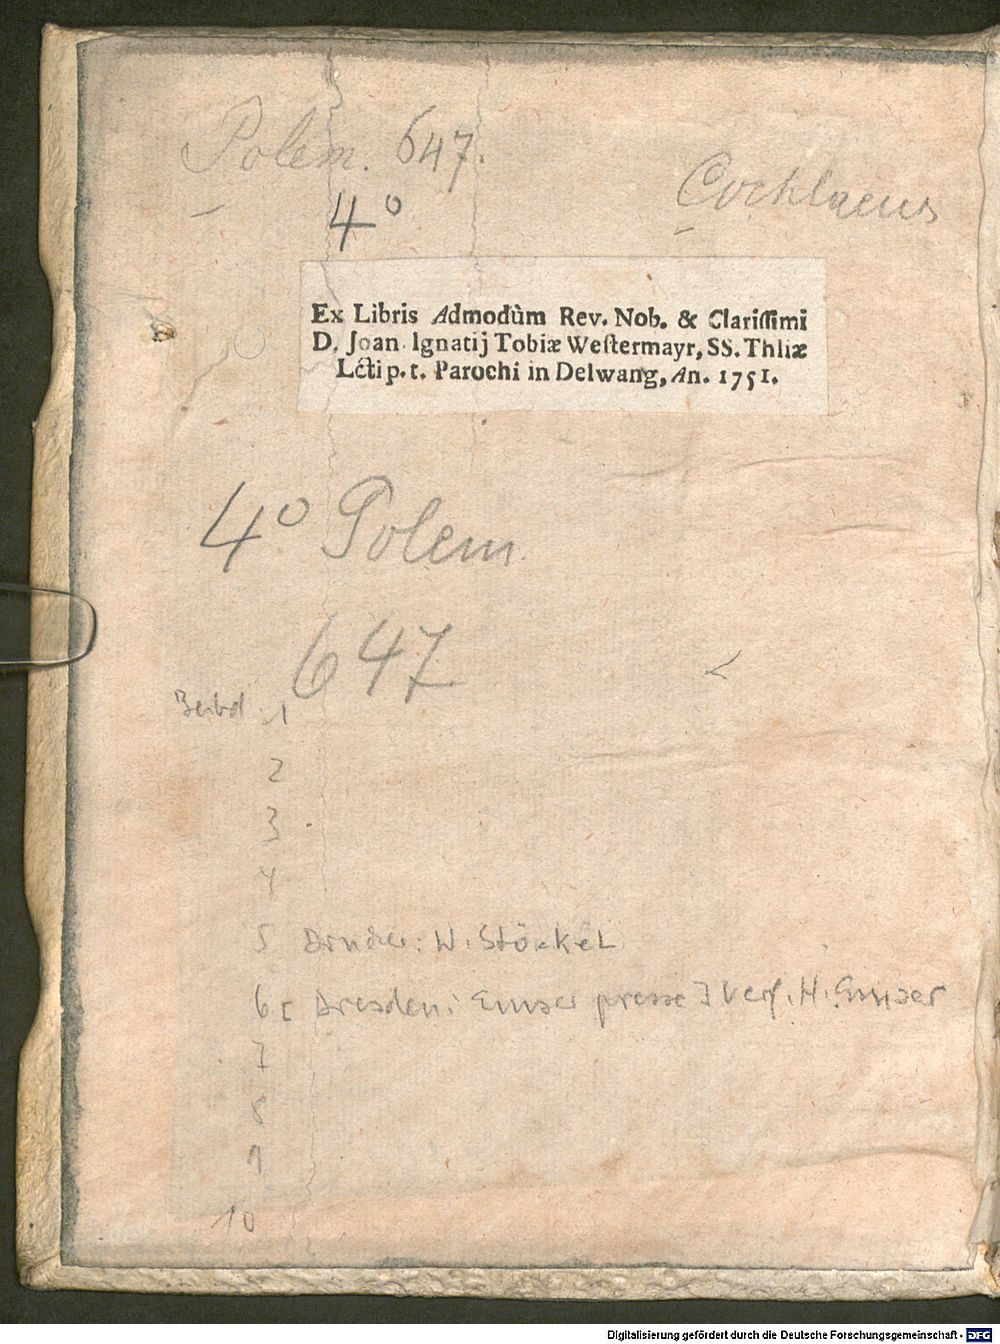 Polem. 647.
4°
Cochlaeus
Ex Libris Admodùm Rev. Nob. & Clariſſimi
D. Joan. Ignatij Tobiæ Weſtermayr, SS. Thliæ
Lćti p. t. Parochi in Delwang, An. 1751.
4° Polem.
647
Beibd. 1
2
3
4
5 Drucker: W. Stöckel
6 [Dresden: Emser presse] Verf. H. Emser
7
8
9
10
Digitalisierung gefördert durch die Deutsche Forschungsgemeinschaft - DFG